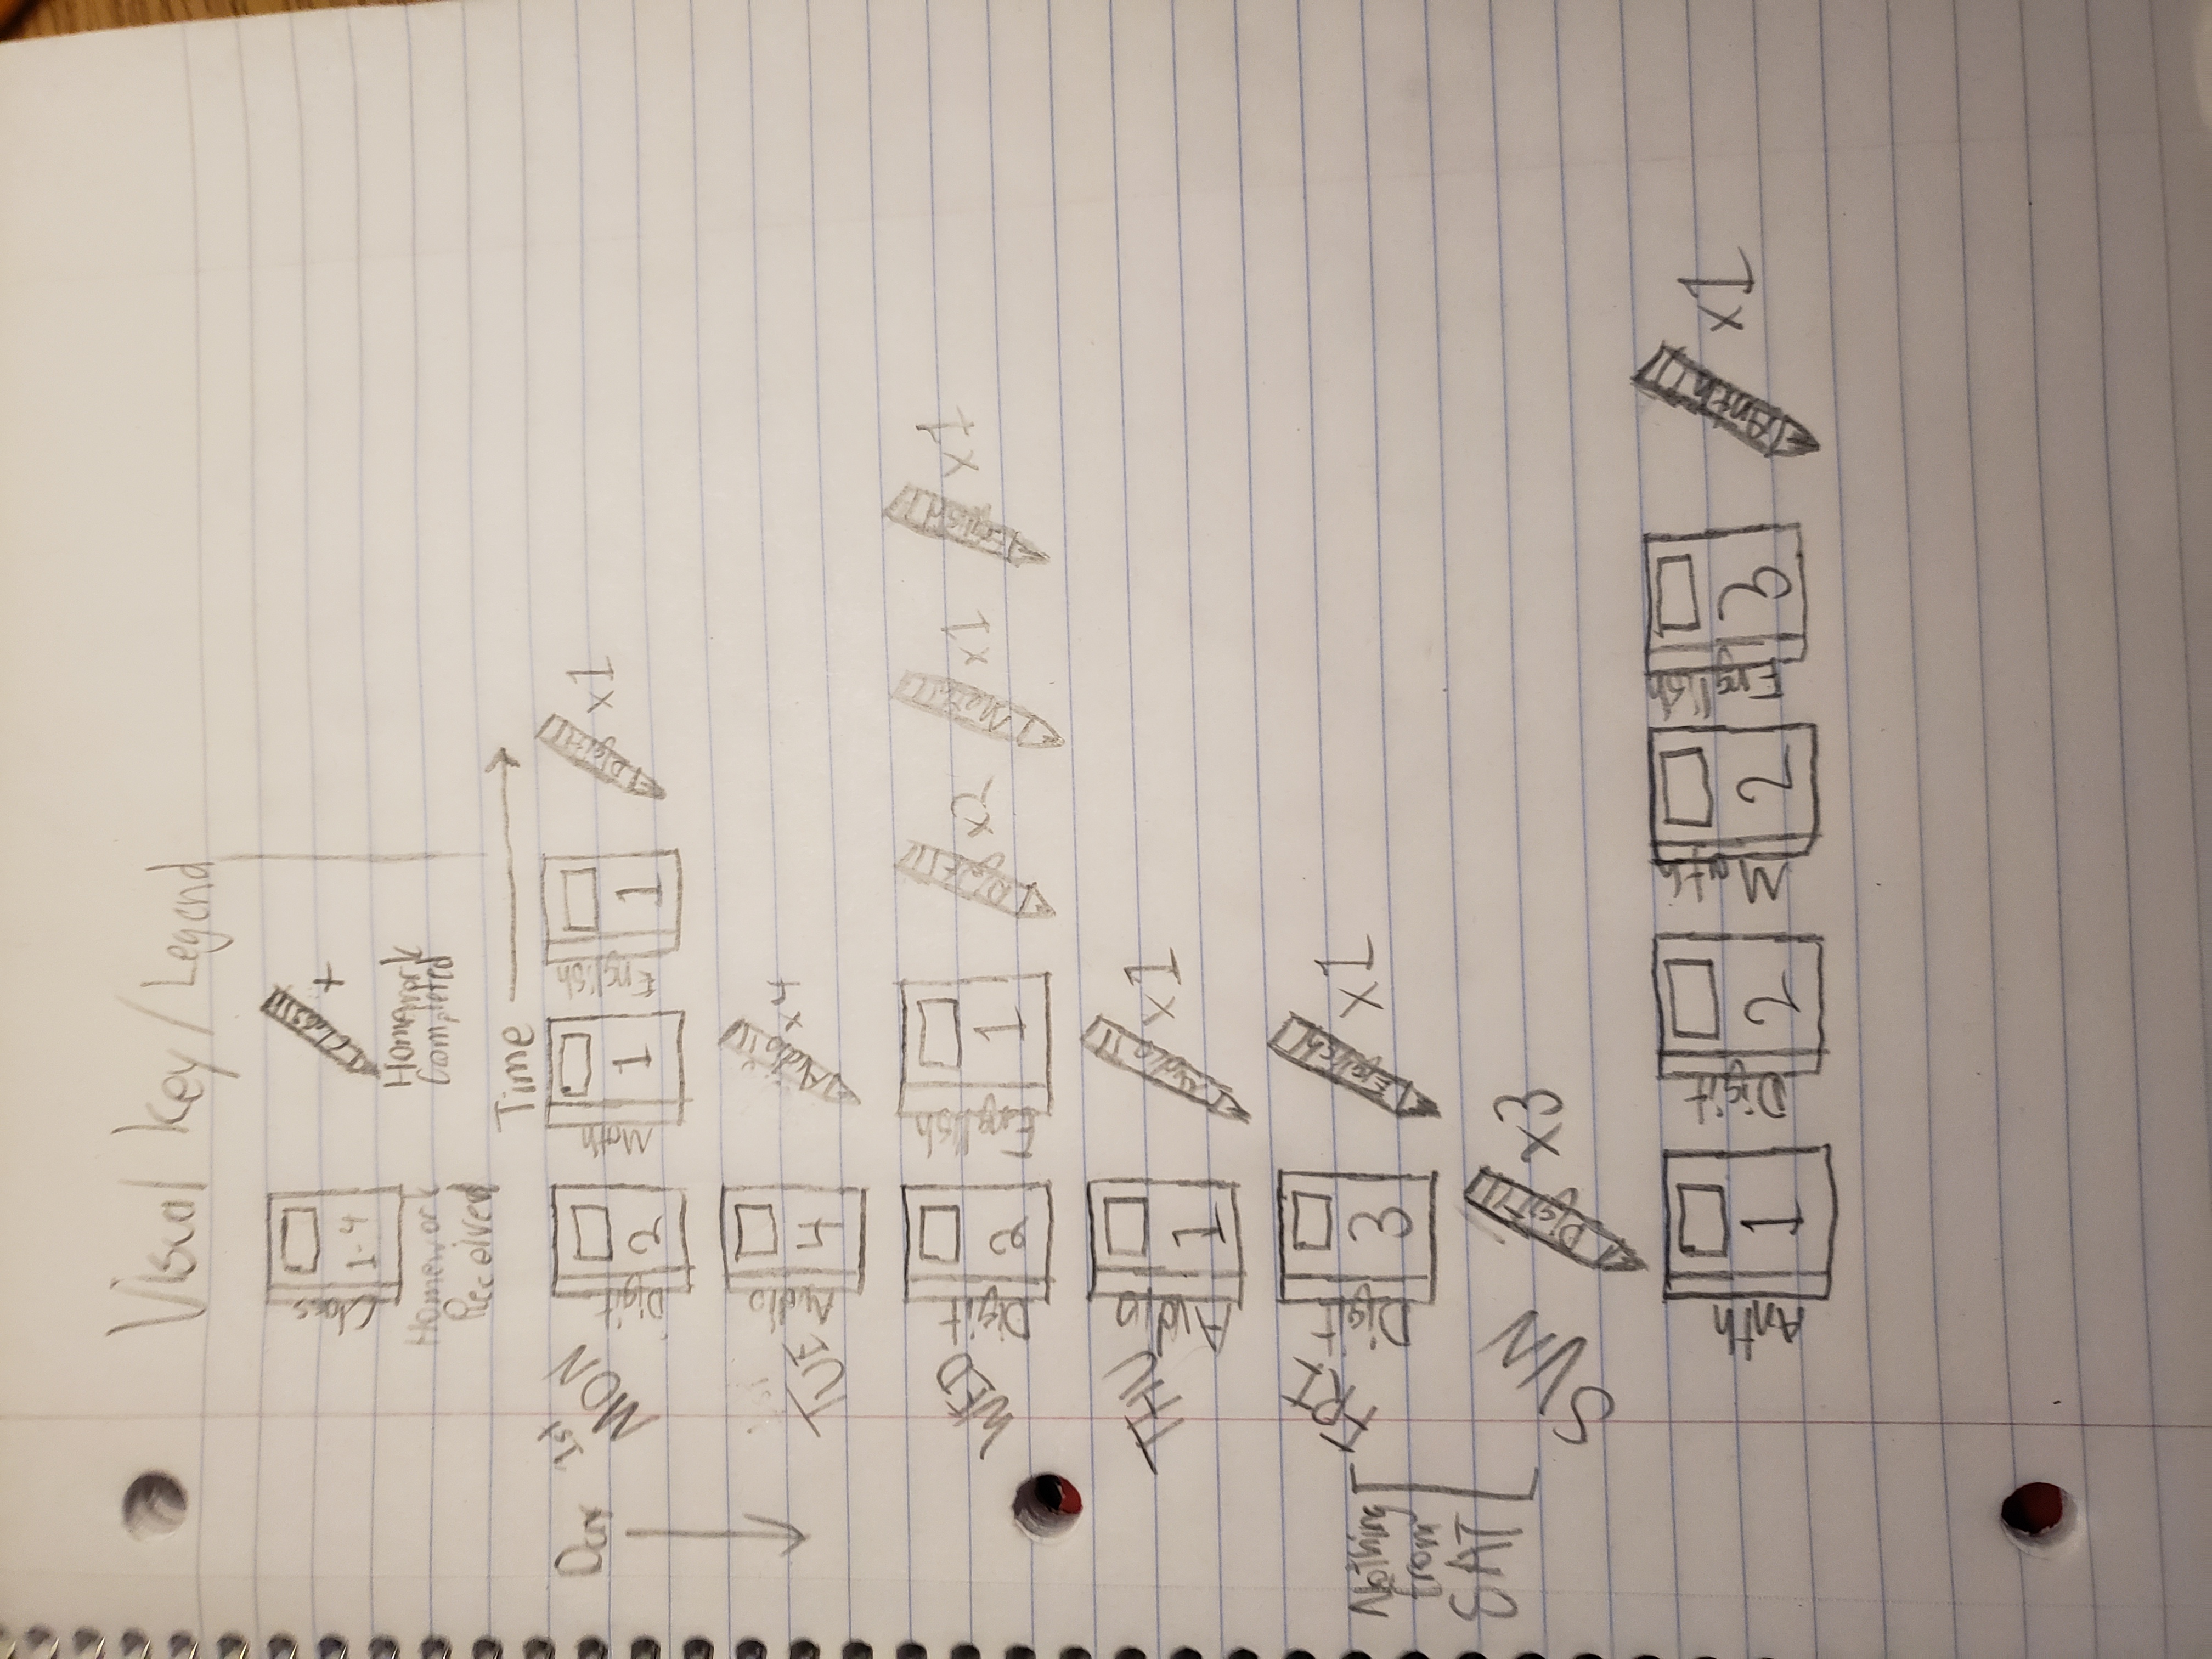 Visual Key/Legend
Class 1-4 Class x
Homework Received
Homework Completed
Time
Day
1st MON Digit 2 Math 1 English 1 Digit x1
TUE Audio 4 Audio x4
WED Digit 2 English 1 Digit x2 Math x1 English x1
THU Audio 1 Audio x1
FRI Digit 3 English x1
Nothing from SAT
SUN Digit x3
Anth 1 Digit 2 Math 2 English 3 Anth x1